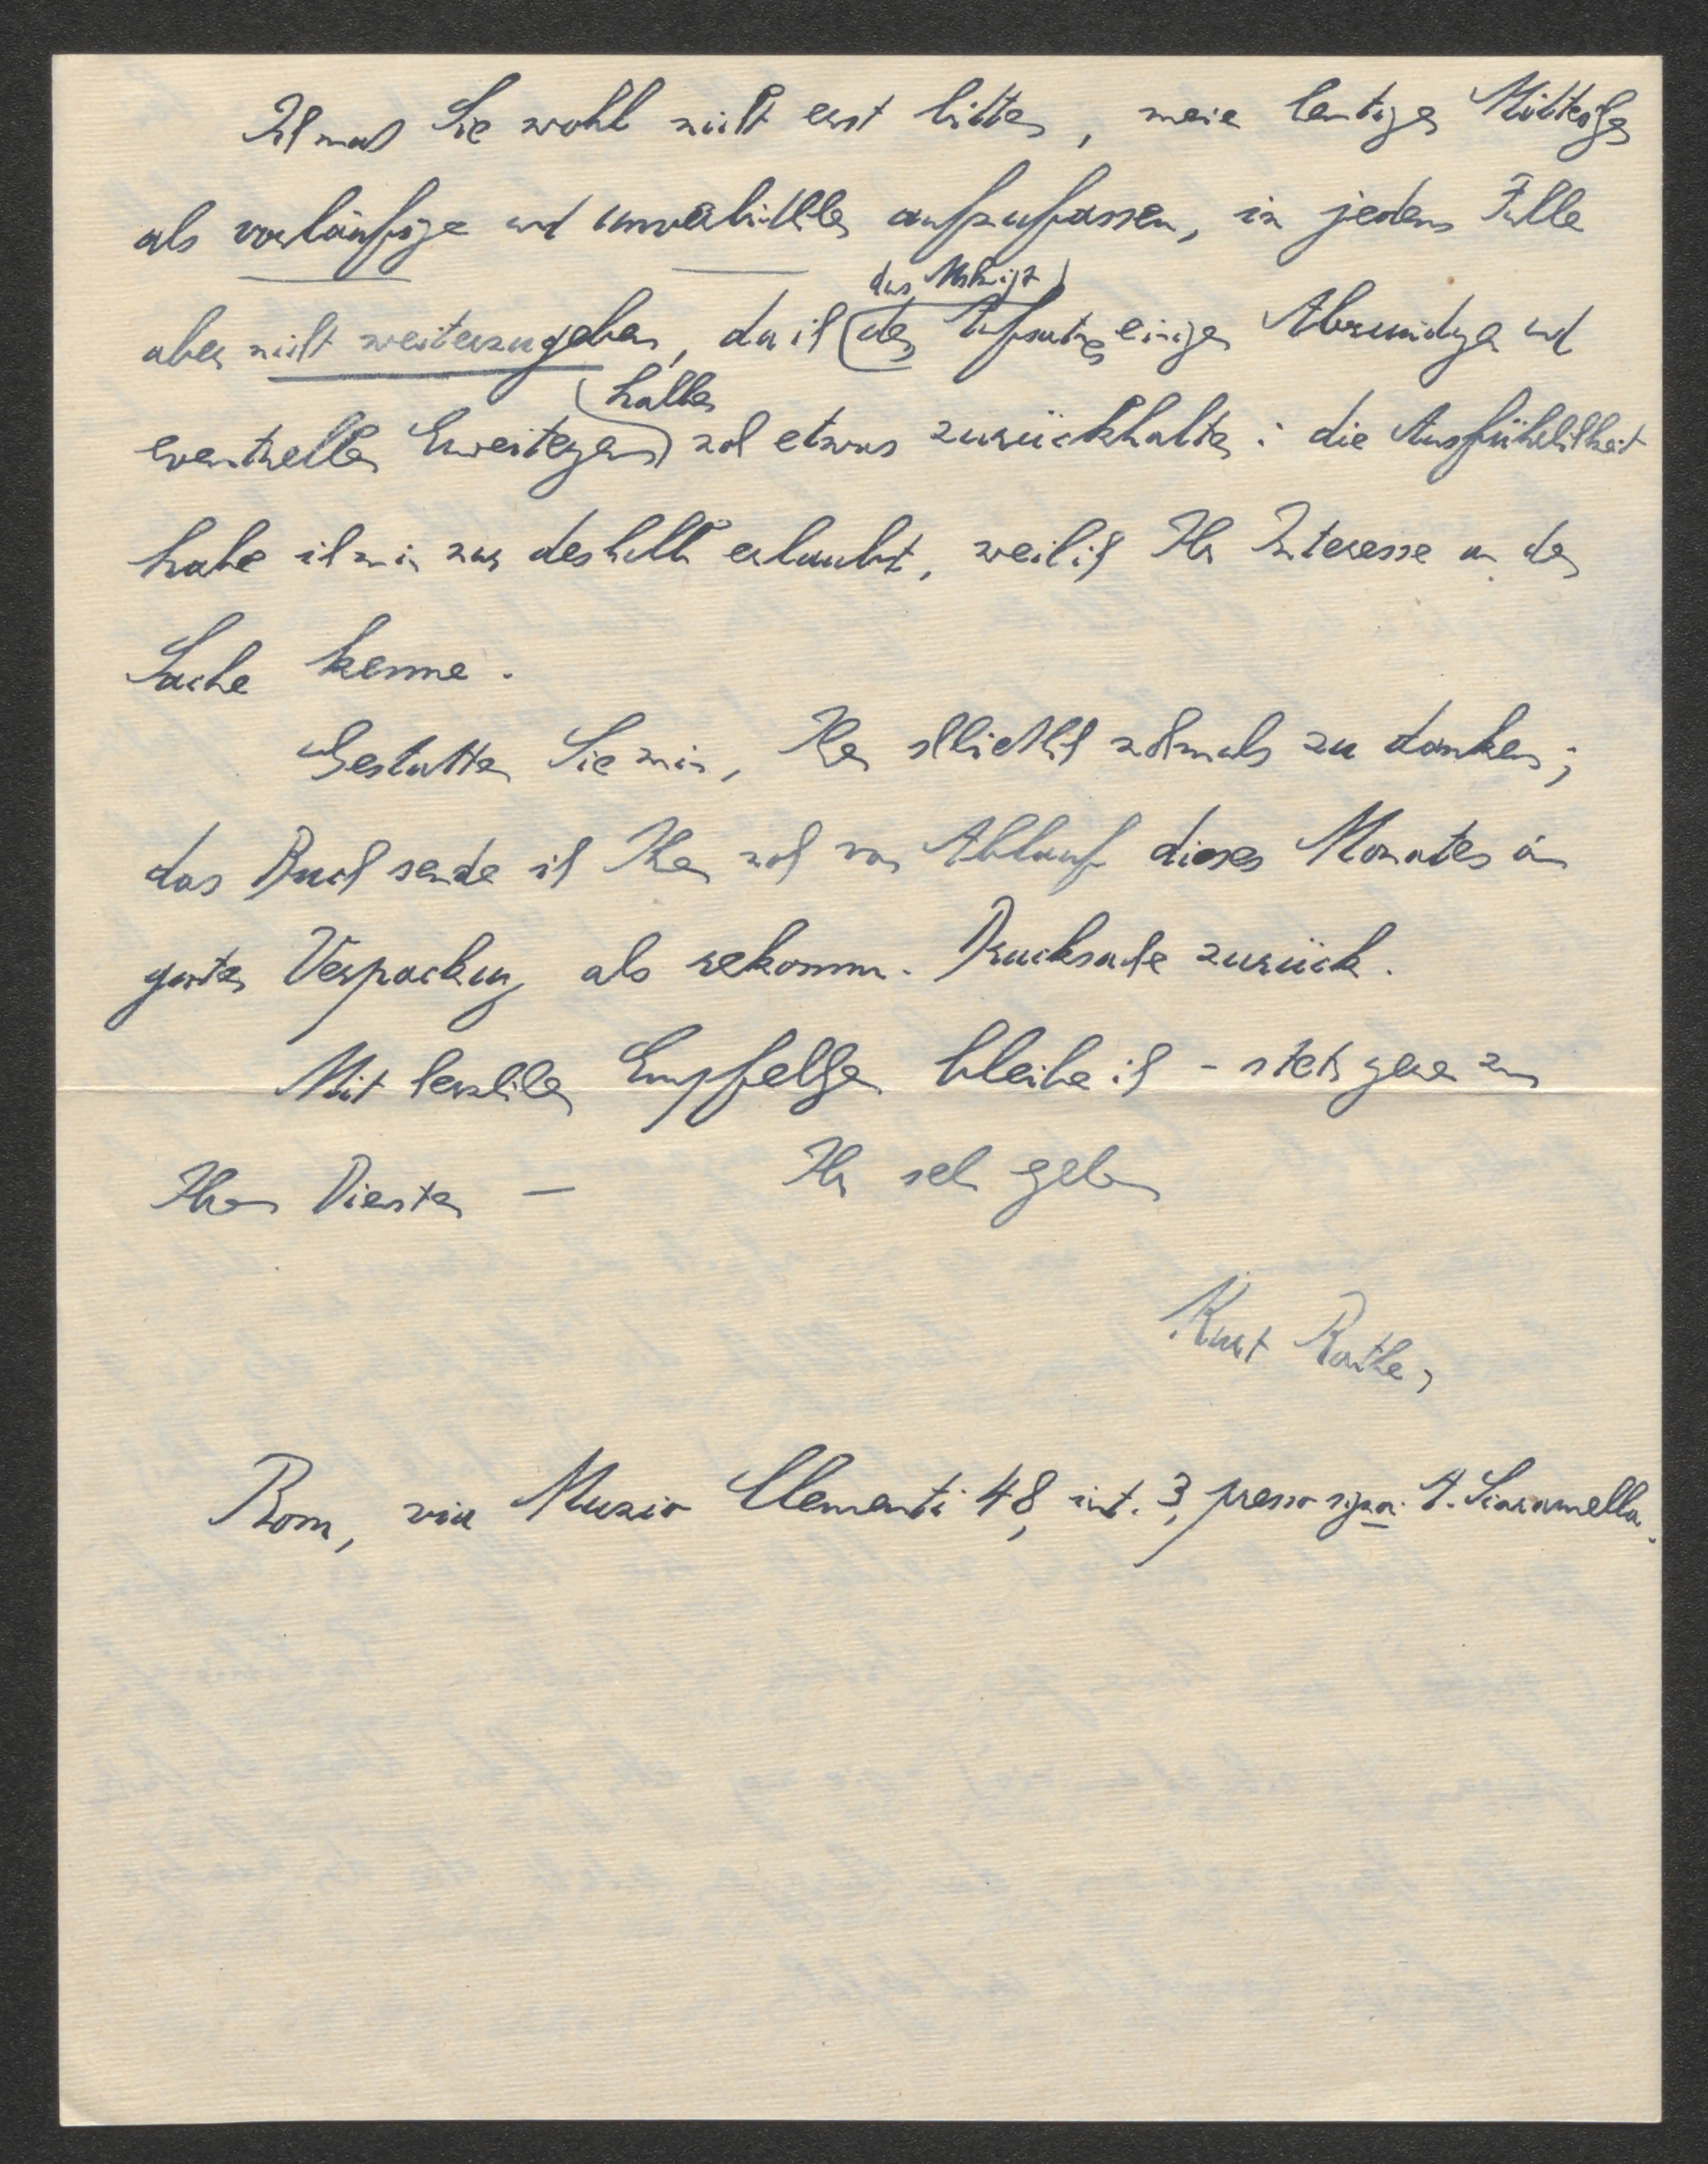 Ich muß Sie wohl nicht erst bitten, meine heutigen Mitteilungen
als vorläufige und unverbindliche aufzufassen, in jedem Falle
das Mskript
aber nicht weiterzugeben, da ich (des Aufsatzes einiger Abrundungen und
halber
eventueller Erweiterungen) noch etwas zurückhalte: die Ausführlichkeit
habe ich mir nur deshalb erlaubt, weil ich Ihr Interesse an der
Sache kenne.
Gestatten Sie mir, Ihnen schließlich nochmals zu danken;
das Buch sende ich Ihnen noch vor Ablauf dieses Monates in
guter Verpackung als rekomm. Drucksache zurück.
Mit herzlichen Empfehlungen bleibe ich – stets gerne zu
Ihren Diensten – Ihr sehr ergebener
Kurt Rathe,
Rom, via Muzio Clementi 48, int. 3, presso sigra. A. Sciaramella.